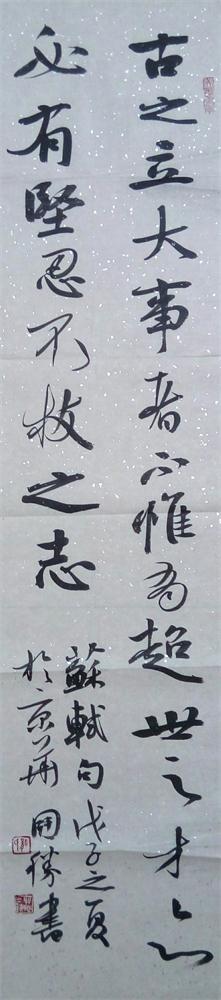 古之立大事者不惟有超世之才亦
必有堅忍不拔之志
蘇軾句戊子之夏
於京華國勝書